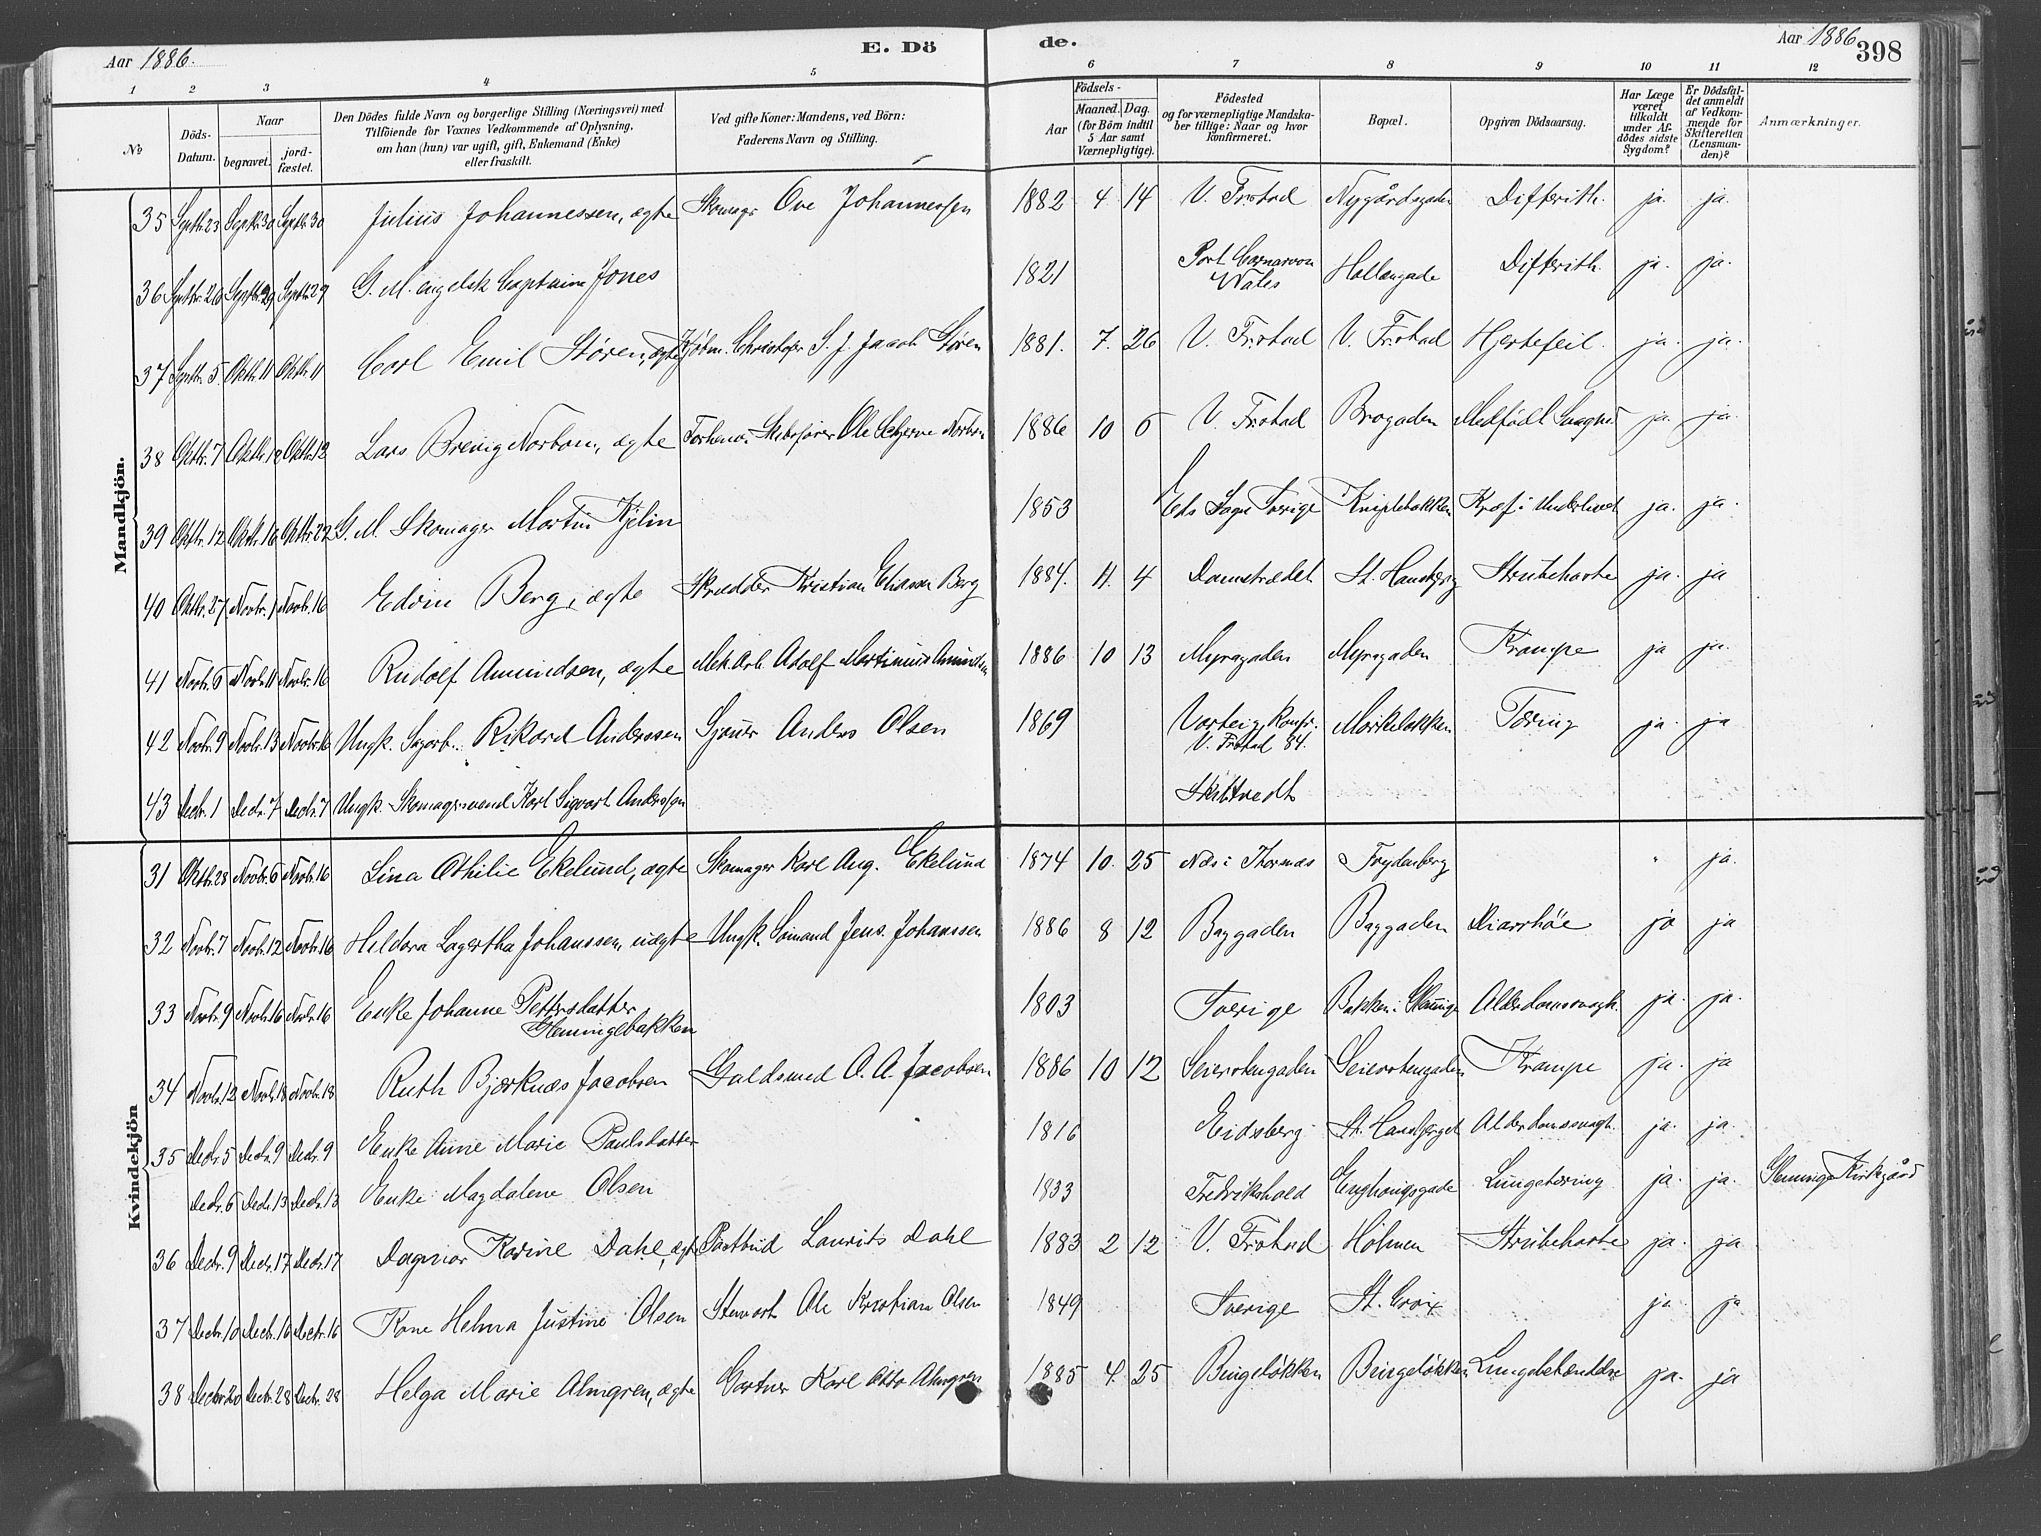 Aar 1886.
E. Dö
de.
Aar 1886
398
1 2 3 4 5 6 7 8 9 10 11 12
No
Döds-Datum.
Naar
begravet.
jord-fæstet.
Den Dödes fulde Navn og borgerlige Stilling (Næringsvei) med
Tilföiende for Voxnes Vedkommende af Oplysning,
om han (hun) var ugift, gift, Enkemand (Enke)
eller fraskilt.
Ved gifte Koner: Mandens, ved Börn:
Faderens Navn og Stilling.
Födsels-
Aar
Maaned. Dag.
(for Börn indtil
5 Aar samt
Værnepligtige).
Födested
og for værnepligtige Mandska-
ber tillige: Naar og hvor
konfirmeret.
Bopæl.
Opgiven Dödsaarsag.
Har Læge
været
tilkaldt
under Af-
dödes sidste
Sygdom?
Er Dödsfal-
det anmeldt
af Vedkom-
mende for
Skifteretten
(Lensman-
den)?
Anmærkninger.
Mandkjön.
35 Septbr. 23 Septbr 30 Septbr 30 Julius Johannessen, ægte Skomagr Ove Johannessen 1882 4 14 V. Fr.stad Nygårdsgaden Difterith. ja. ja.
36 Septbr. 26 Septbr 29 Septbr 29 G. M. engelsk Captain Jones 1821 Port Carnarvon Wales Hollengade Difterith. ja. ja.
37 Septbr. 5 Oktbr 11 Oktbr 11 Carl Emil Støren, ægte Kjøbm. Christofer S. J. Jacob Støren 1881. 7. 26 V. Fr.stad V. Fr.stad Hjertefeil. ja. ja.
38 Oktbr. 7 Oktbr. 12 Oktbr. 12 Lars Brevig Norbom, ægte Skibsfører Ole Norbom 1886 10 6 V. Fr.stad Brogaden Medfødt Svaghed ja. ja.
39 Oktbr. 12 Oktbr. 16 Oktbr. 22 G. M. Skomager Martin Kjelin 1853 Eds Sogn Sverige Kniplebakken Kræft i Underlivet ja. ja.
40 Oktbr. 27 Novbr. 1 Novbr. 16 Edvin Berg, ægte Skrædder Kristian Eliassen Berg 1884. 11. 4 Damstrædet St. Hansberg Strubehoste ja. ja
41 Novbr. 6 Novbr. 11 Novbr. 16 Rudolf Amundsen, ægte Mek. Arb. Adolf Martinius Amundsen 1886 10 13 Myragaden Myragaden Krampe ja ja.
42 Novbr. 9 Novbr. 13 Novbr. 16 Ungk. Sagarb. Rikard Anderssen Sjauer Anders Olsen 1869 Varteig, Konfr. V. Fr.stad 84. Mørkeløkken Tæring ja. ja
43 Decbr. 1 Decbr. 7 Decbr. 7 Ungk. Skomagersvend Karl Sigvart Andersen Skibtvedt
Kvindekjön
31 Oktbr. 28 Novbr. 6 Novbr. 16 Lina Othilie Ekelund, ægte Skomager Karl Aug. Ekelund 1874 10. 25 Næs i Thornæs Frydenberg " ja.
32 Novbr. 7 Novbr. 12 Novbr. 16 Heldora Lagertha Johanssen, uægte Ungk. Sømand Jens Johanssen 1886 8 12 Baggaden Baggaden Diarrhöe ja ja
33 Novbr. 9 Novbr. 16 Novbr. 16 Enke Johanne Pettersdatter Glemmingebakken 1803 Sverige Bakken i Glemminge Alderdomssvagh. ja. ja.
34 Novbr. 12 Novbr. 18 Novbr. 18 Ruth Bjærknæs Jacobsen Guldsmed O. A. Jacobsen 1886 10 12 Seierstengaden Seierstengaden Krampe ja. ja
35 Decbr. 5 Decbr. 9 Decbr. 9 Enke Anne Marie Paulsdatter 1816 Eidsberg St. Hansberget Alderdomssvagh. ja. ja.
Decbr. 6 Decbr. 13 Decbr. 13 Enke Magdalene Olsen 1833 Fredrikshald Enghougsgade Lungetæring ja. ja. Glemminge Kirkegård
36 Decbr. 9 Decbr. 17 Decbr. 17 Dagmar Karine Dahl, ægte Postbud Laurits Dahl 1883 2 12 V. Fr.stad Holmen Strubehoste ja. ja
37 Decbr. 10 Decbr. 16 Decbr. 16 Kone Helma Justine Olsen Stewart Ole Kristian Olsen 1849 Sverige St. Croix ja. ja.
38 Decbr. 20 Decbr. 28 Decbr. 28 Helga Marie Almgren, ægte Gartner Karl Otto Almgren 1885 4. 25 Bingeløkken Bingeløkken Lungebetændelse ja. ja